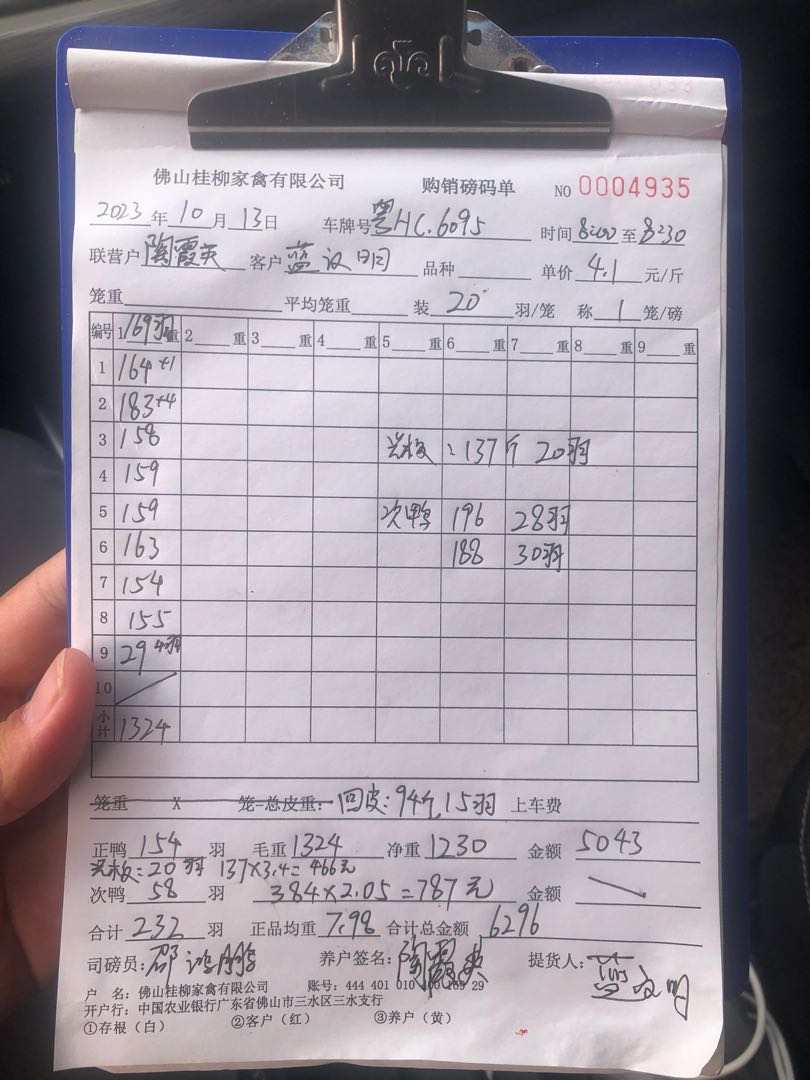 佛山桂柳家禽有限公司 购销磅码单 NO 0004935
2023年10月13日 车牌号粤HC.6095 时间8:00至8:30
联营户陶霞英 客户蓝汉明 品种 单价4.1元/斤
笼重 平均笼重 装20羽/笼 称1笼/磅
编号 1 169羽 重 2 重 3 重 4 重 5 重 6 重 7 重 8 重 9 重
1 164+1
2 183+4
3 158 137斤 20羽
4 159
5 159 次鸭 196 28羽
6 163 188 30羽
7 154
8 155
9 29 4羽
10
小计 1324
笼重 X 笼=总皮重: 回皮:94斤,15羽 上车费
正鸭154羽 毛重1324 净重1230 金额5043
20羽 137×3.4=466元
次鸭58羽 384×2.05=787元 金额
合计232羽 正品均重7.98 合计总金额6296
司磅员:邵鸿鹏 养户签名:陶霞英 提货人:蓝汉明
户 名:佛山桂柳家禽有限公司 账号:444 401 010 29
开户行:中国农业银行广东省佛山市三水区三水支行
①存根(白) ②客户(红) ③养户(黄)